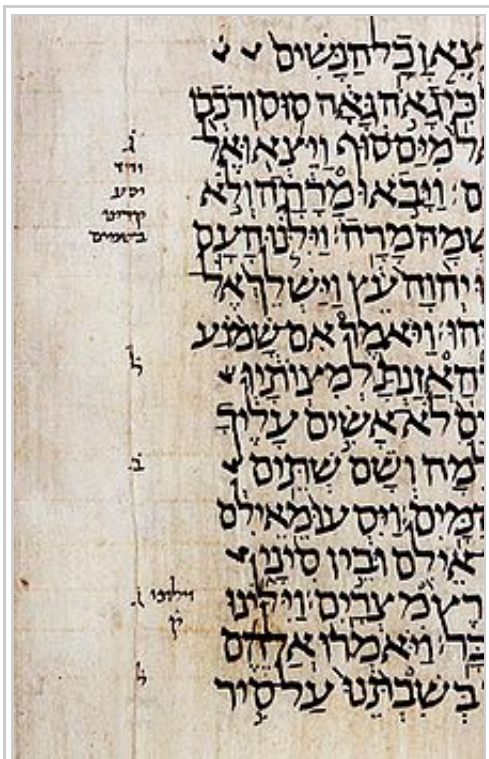 צֶאןָ כׇל הַנָּשִׁים
כִּי גָאֹה גָּאָה סוּס וְרֹכְבוֹ
אל מִיַּם סוּף וַיֵּצְאוּ אֶל
ם׃ וַיָּבֹאוּ מָרָתָה וְלֹא
שְׁמָהּ מָרָה׃ וַיִּלֹּנוּ הָעָם
וּ יְהוָה עֵץ וַיַּשְׁלֵךְ אֶל
הוּ׃ וַיֹּאמֶר אִם שָׁמוֹעַ
הַאֲזַנְתָּ לְמִצְוֹתָיו
יִם לֹא אָשִׂים עָלֶיךָ
למָה וְשָׁם שְׁתֵּים
הַמָּיִם׃ וַיִּסְעוּ מֵאֵילִם
אֵילִם וּבֵין סִינָי
רֶץ מִצְרָיִם׃ וַיִּלִּינוּ
בָּר׃ וַיֹּאמְרוּ אֲלֵהֶם
בְּשִׁבְתֵּנוּ עַל סִיר
ג
יסע
קדים
בשמים
ל
ב
וילונו
ק
ל